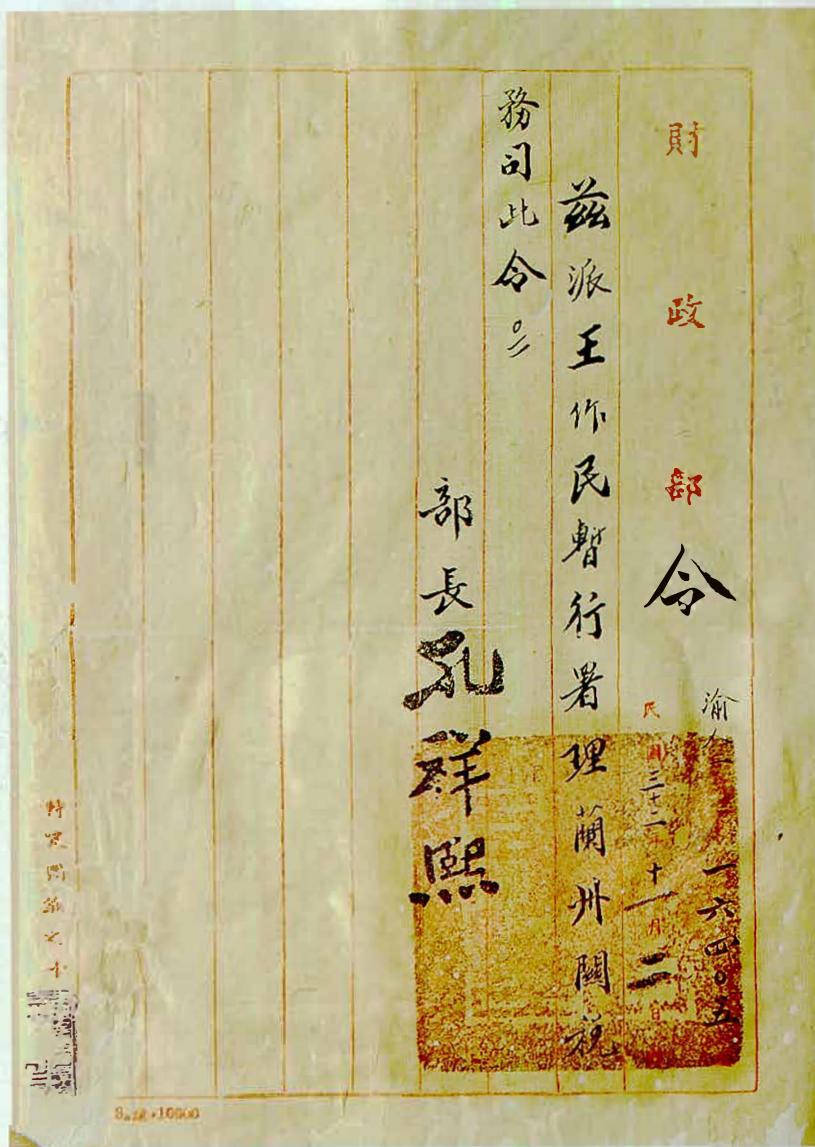 財政部令
渝人 一六四〇五
民國三十二年十一月二日
茲派王作民暫行署理蘭州關稅
務司此令
部長孔祥熙
10000